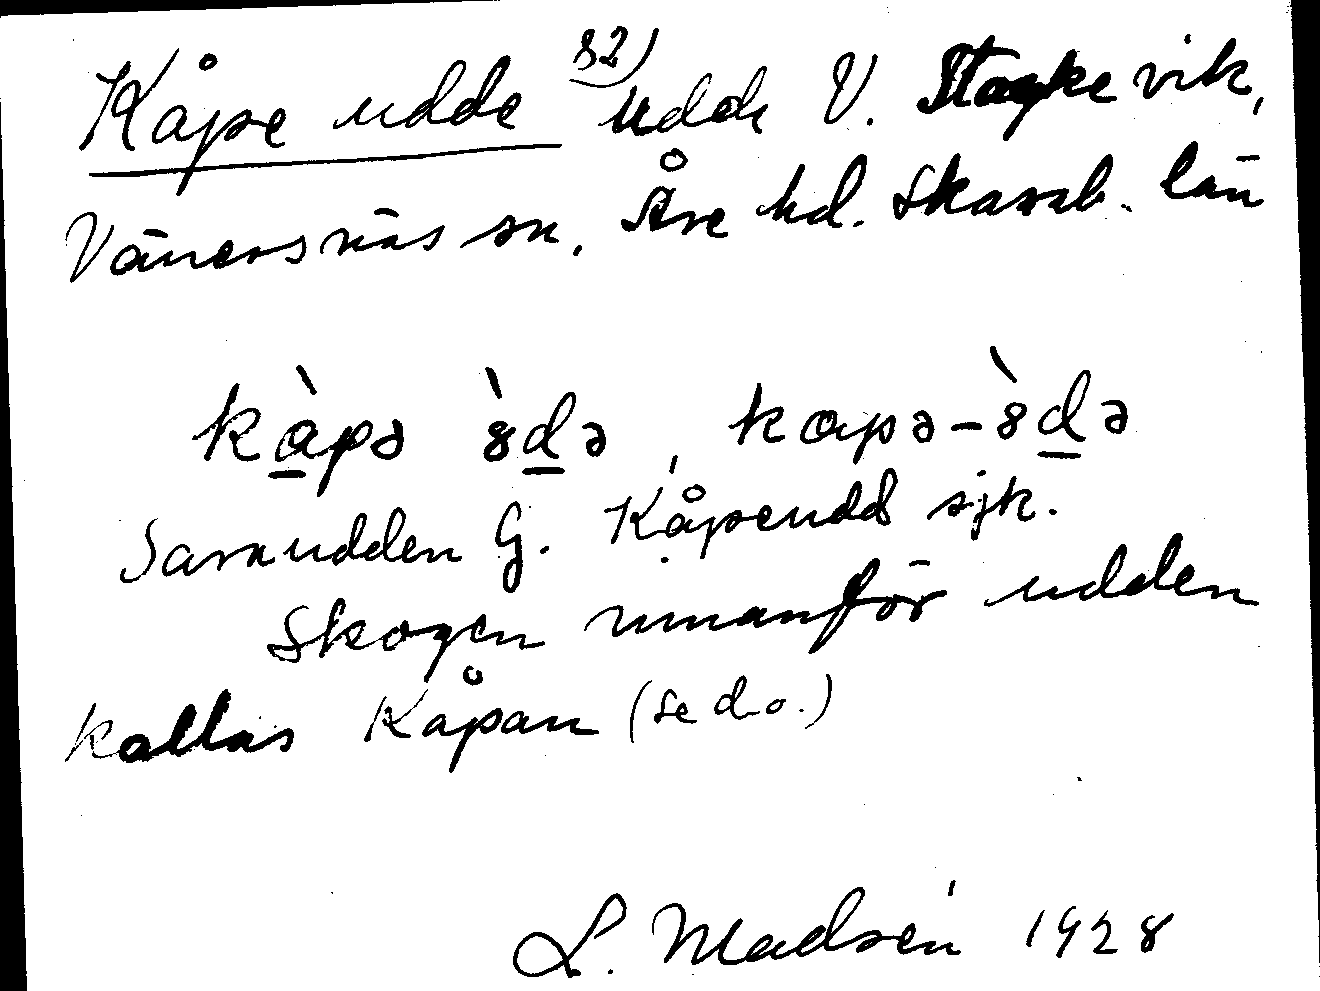 Kåpe udde 82) Udde V. Stackevik,
Vänersnäs sn. Åse hd. Skarab. län
kàpə 8̀də, kapə-8̀də
Saxudden G. Kåpeudd sjk.
Skogen innanför udden
kallas Kåpan (se d.o.)
L. Madsén 1928